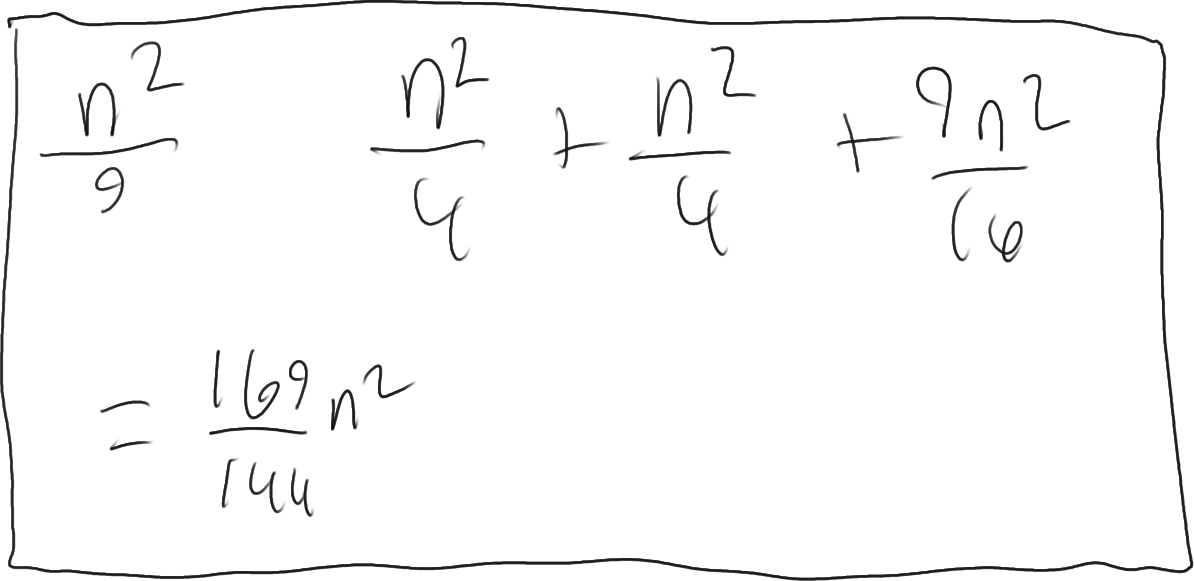 n²/9 n²/4 + n²/4 + 9n²/16
= 169/144 n²